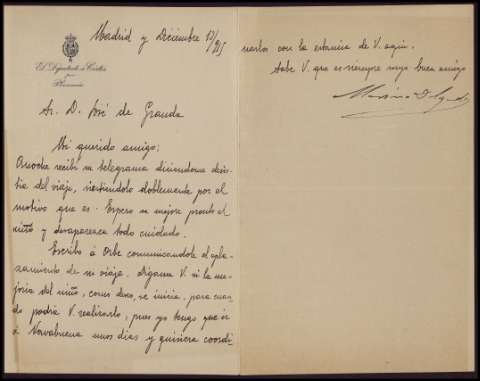 Madrid y Diciembre 13/915
El Diputado á Cortes
por
Plasencia
Sr. D. José de Granda
Mi querido amigo:
Anoche recibí su telegrama diciéndome desis-
tía del viaje, sintiéndolo doblemente por el
motivo que es. Espero se mejore pronto el
niño y desaparezca todo cuidado.
Escribo á Orbe comunicandole el apla-
zamiento de mi viaje. Dígame V. si la me-
joria del niño, como deseo, se inicia, para cuan-
do podria V. realizarlo, pues yo tengo que ir
á Navalmoral unos dias y quisiera coordi-
narlos con la estancia de V. aqui.
Sabe V. que es siempre suyo buen amigo